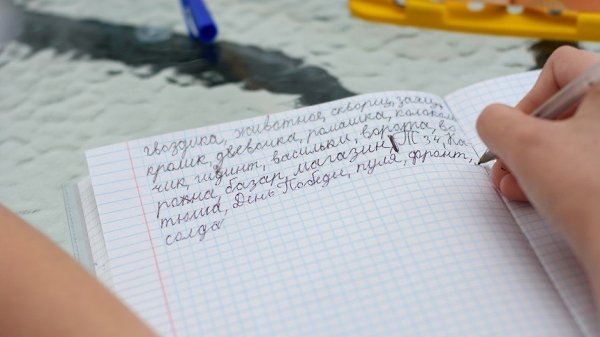 гвоздика, животное, скворец, заяц,
кролик, двевочка, ромашка, колоколь
чик, гицинт, васильки, ворота, во
базар, магазин, Т 34, Ка
тюша, День Победы, пуля, фронт,
солда